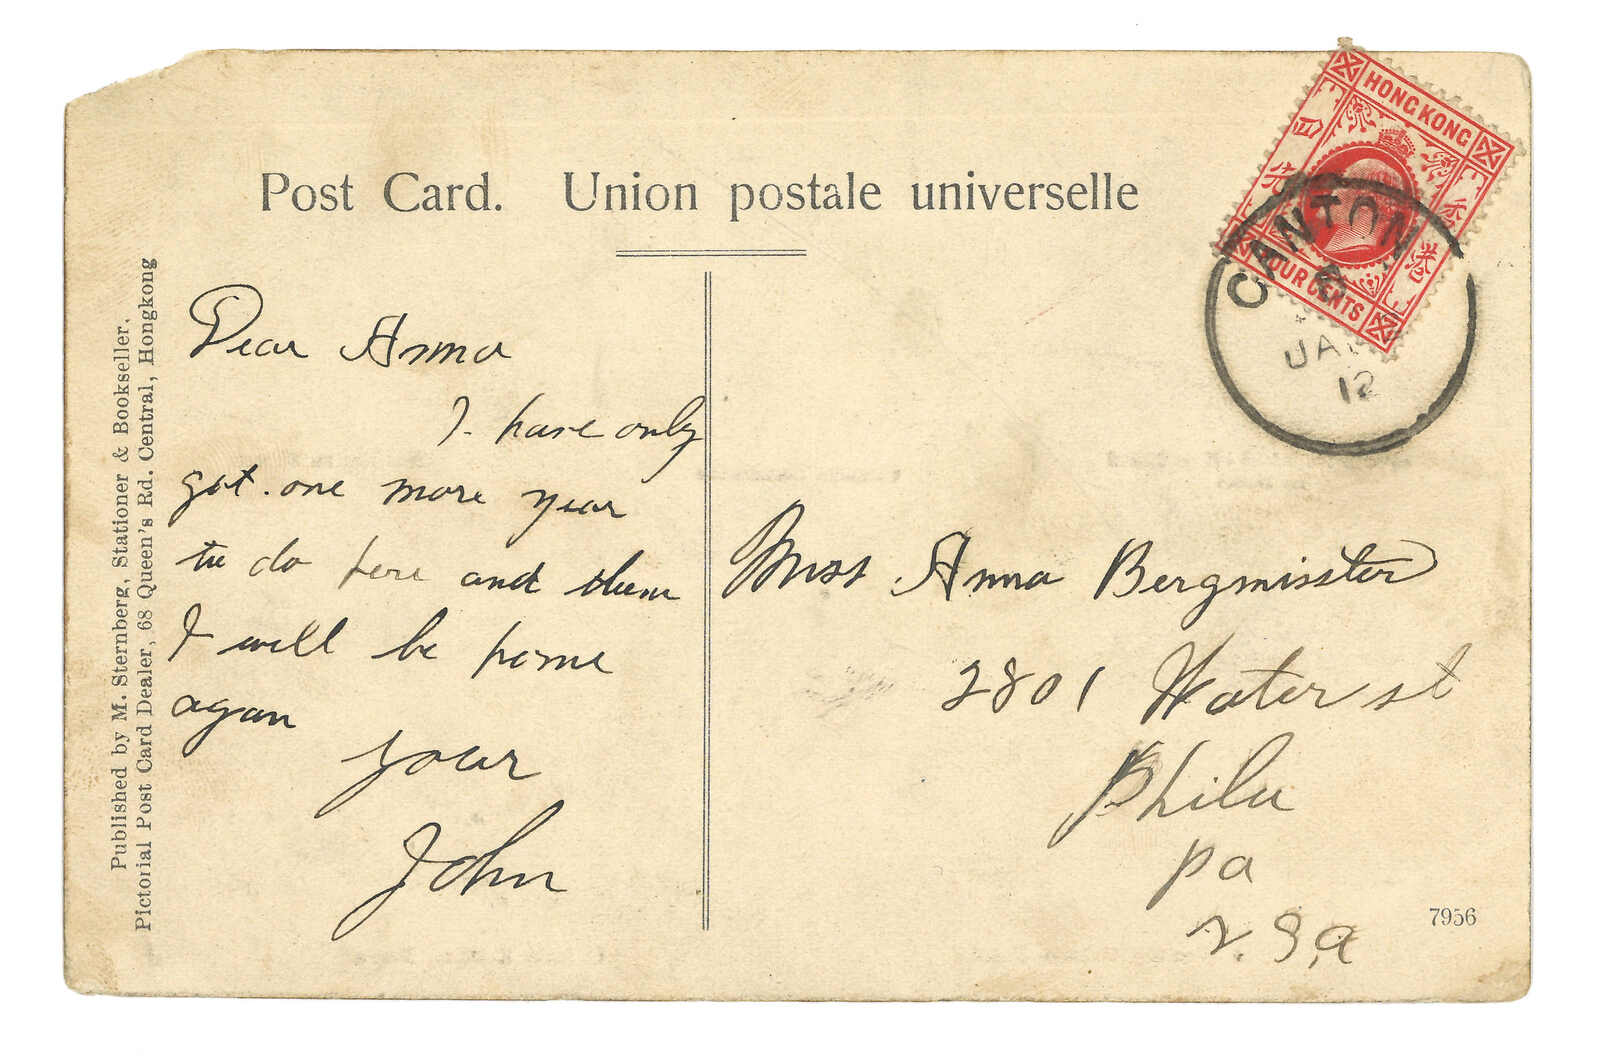 Post Card. Union postale universelle
HONG KONG
香港
四
FOUR CENTS
CANTON
JA
12
Published by M. Sternberg, Stationer & Bookseller,
Pictorial Post Card Dealer, 68 Queen's Rd. Central, Hongkong
Dear Anna
I have only
got one more year
to do here and then
I will be home
again
your
John
Miss Anna Bergmisster
2801 Water st
Phila
Pa
U.S.A
7956